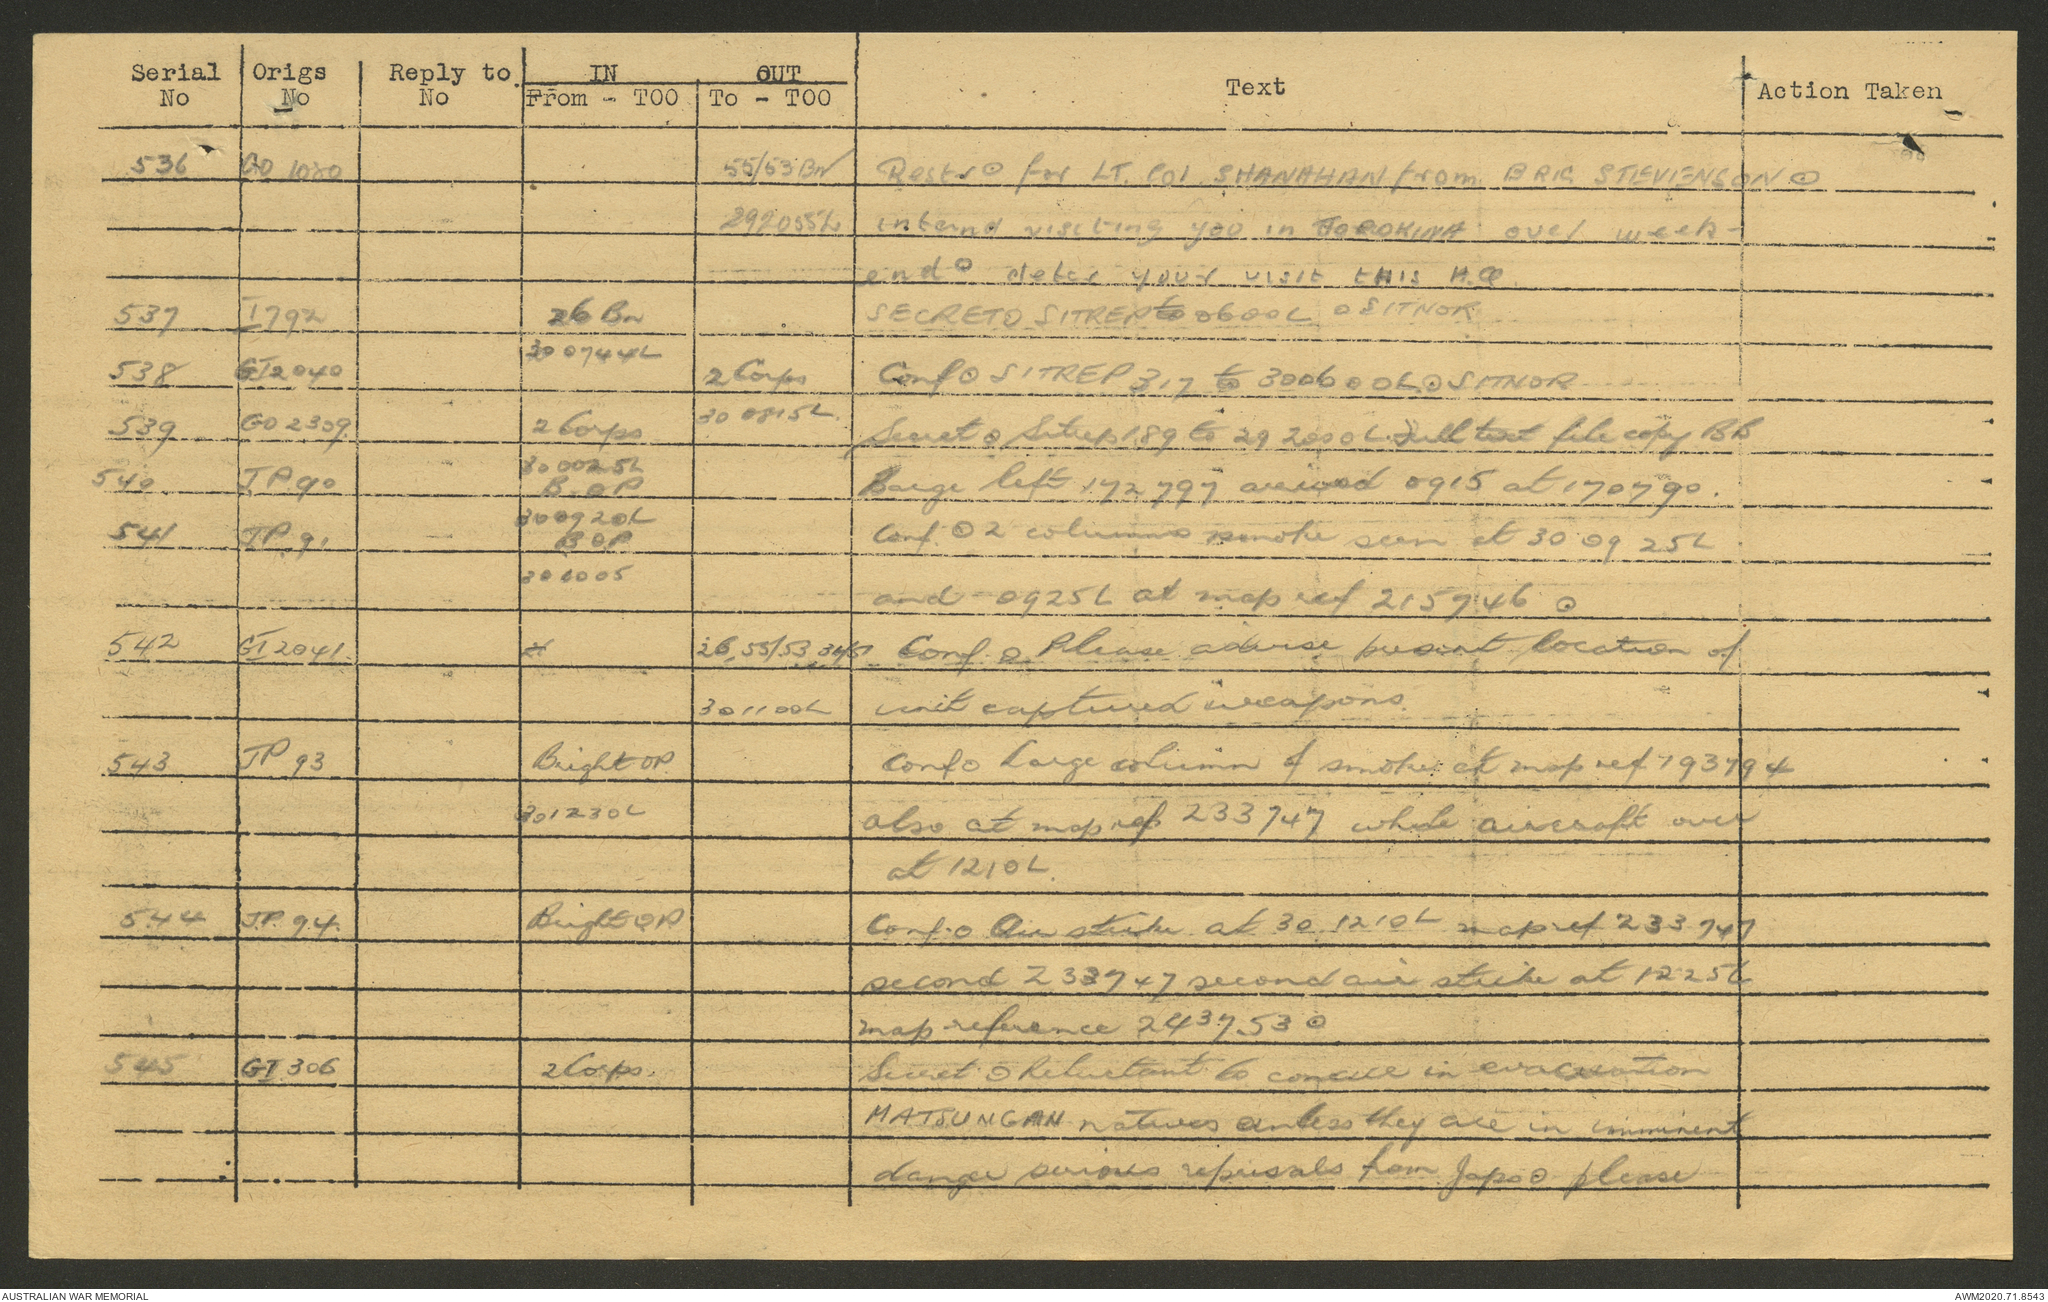 Serial No | Origs No | Reply to No | IN From - TOO | OUT To - TOO | Text | Action Taken
536 | GO 1080 | | | 55/53 Bn | Restr ⊙ for LT. COL SHANAHAN from BRIG STEVENSON ⊙
292055L | intend visiting you in TOROKINA over week-
end ⊙ defer your visit this H.Q
537 | I792 | | 26 Bn | | SECRET ⊙ SITREP to 0600L ⊙ SITNOR
300744L
538 | GI2040 | | | 2 Corps | Conf ⊙ SITREP 317 to 300600L ⊙ SITNOR
300815L
539 | GO 2309 | | 2 Corps | | Secret ⊙ Sitrep 189 to 29 2000L full text file copy BB
300025L
540 | JP 90 | | B. OP | | Barge left 172797 arrived 0915 at 170790.
300920L
541 | JP. 91 | | B OP | | Conf. ⊙ 2 columns smoke seen at 30 0925L
301005
and 0925L at map ref 215746 ⊙
542 | GI2041 | | | 26, 55/53, 31/51 | Conf. ⊙ Please advise present location of
301100L | unit captured weapons.
543 | JP 93 | | Bright OP | | Conf ⊙ Large column of smoke at map ref 193794
301230L | also at map ref 233747 while aircraft over
at 1210L.
544 | JP. 94. | | Bright OP | | Conf. ⊙ Air strike at 30 1210L map ref 233747
second 233747 second air strike at 1225L
map reference 243753 ⊙
545 | GI 306 | | 2 Corps. | | Secret ⊙ Reluctant to concur in evacuation
MATSUNGAN natives unless they are in imminent
danger serious reprisals from Japs ⊙ please
AUSTRALIAN WAR MEMORIAL
AWM2020.71.8543